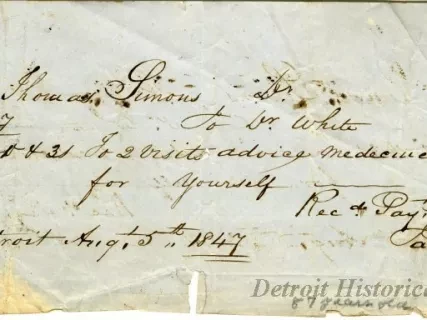 Thomas Simons Dr
To Dr. White
& 31 To 2 visits advice medecine
for Yourself
Recd Pay
troit Aug. 5th, 1847
Detroit Historica
87 years old